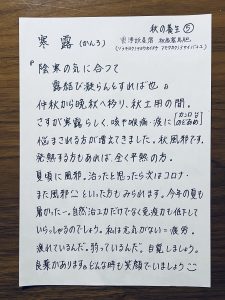 秋の養生⑤
寒露(かんろ)
『陰寒の気に合って
露結び凝らんとすれば也』
仲秋から晩秋へ移り、秋土用の間。
さすが寒露らしく、咳や喉痛・痰に
悩まされる方が増えてきました。秋風邪です。
発熱する方もあれば、全く平熱の方。
夏頃に風邪。治ったと思ったら次はコロナ・
また風邪といった方もみられます。今年の夏も
暑かったー。自然治ユ力だけでなく免疫力も低下して
いらっしゃるのでしょう。私は元気がない=疲労。
疲れているんだ。弱っているんだ。自覚しましょう。
良薬があります。どんな時も笑顔でいましょう